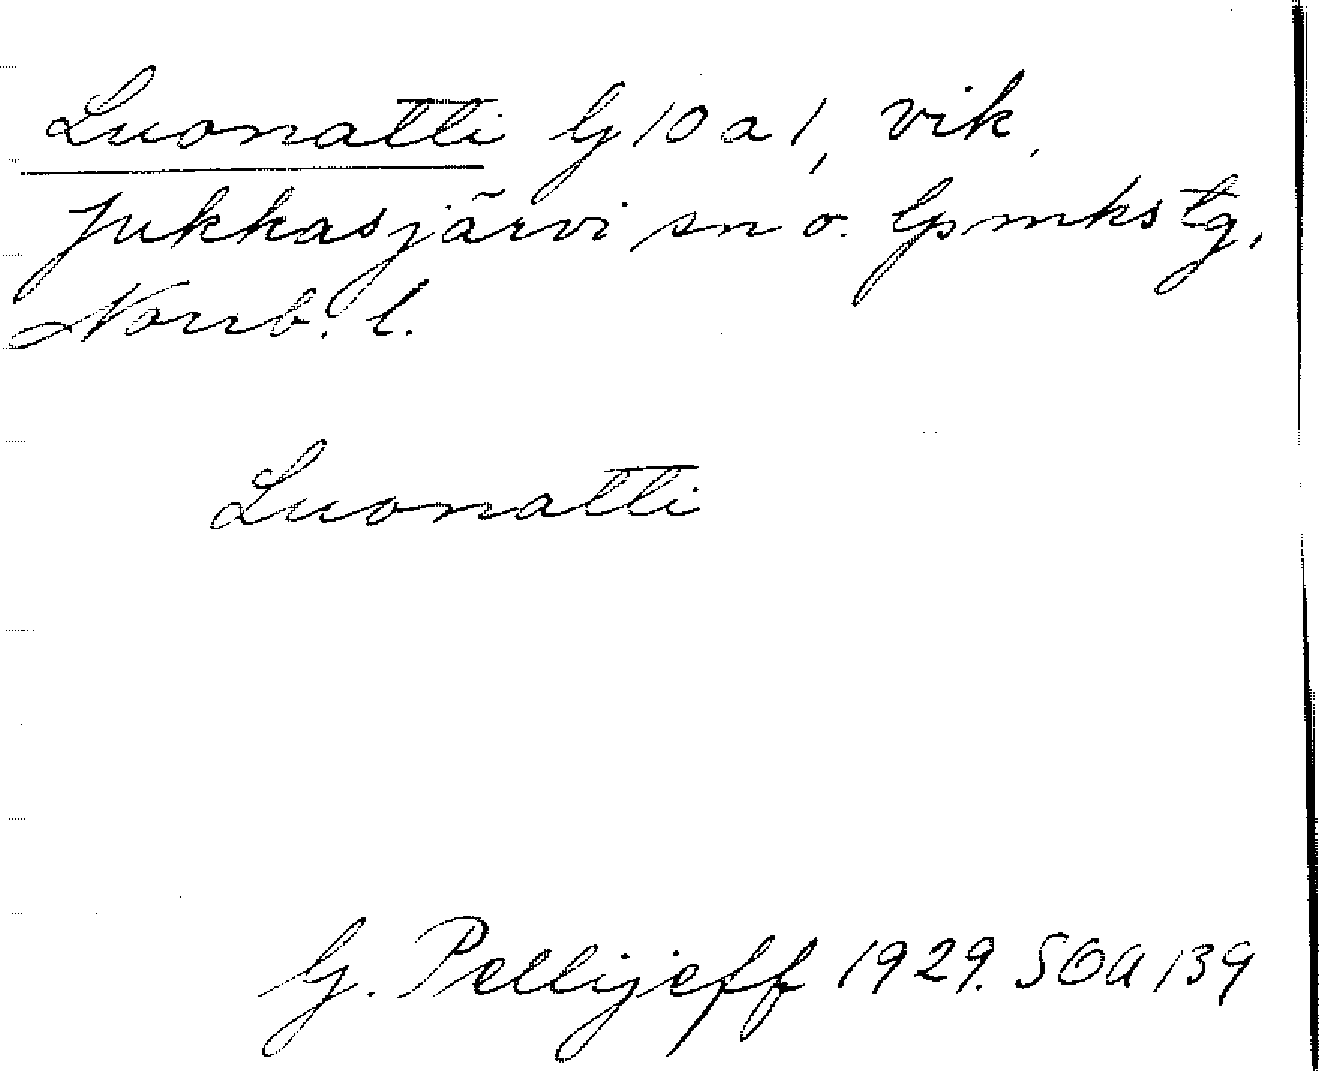 Luonatti G10a1, vik,
Jukkasjärvi sn o. lpmkstg,
Norrb. l.
Luonatti
G. Pellijeff 1929. SOA 139